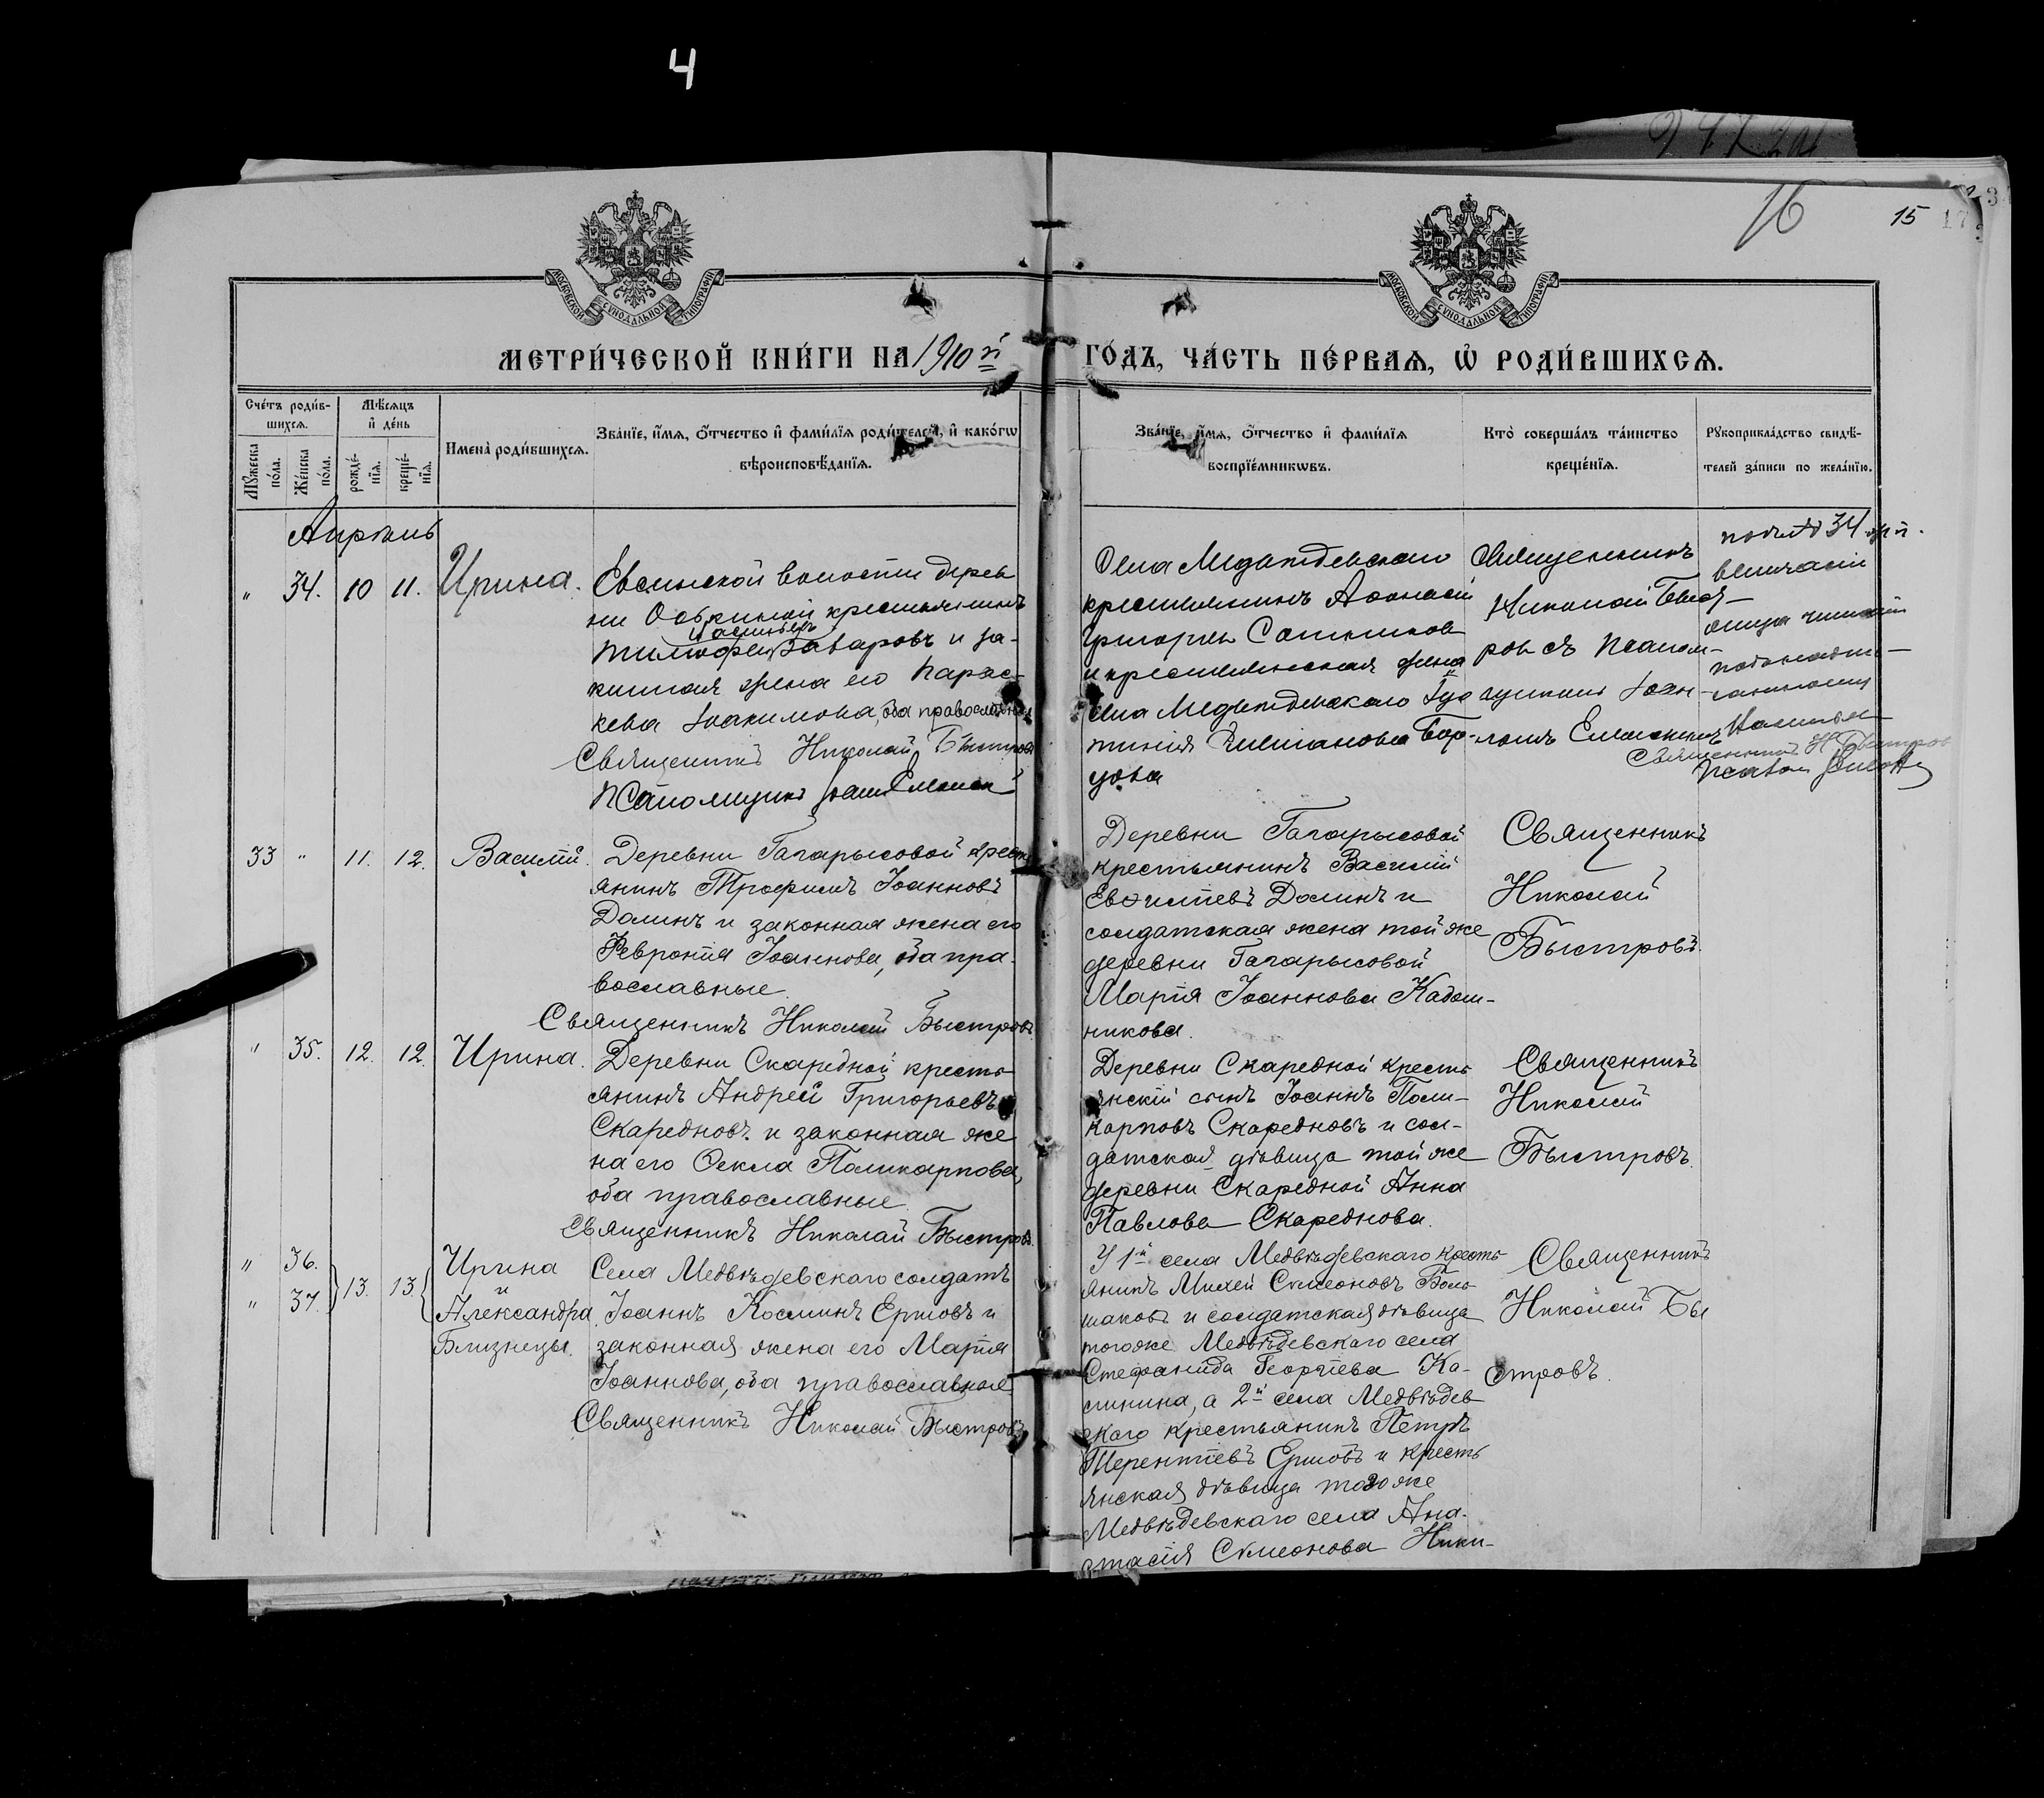 4
16
15
17
МОСКОВСКОЙ СѴНОДАЛЬНОЙ ТИПОГРАФІИ
МОСКОВСКОЙ СѴНОДАЛЬНОЙ ТИПОГРАФІИ
МЕТРИ́ЧЕСКОЙ КНИ́ГИ НА 1910 й
ГО́ДЪ, ЧА́СТЬ ПЕ́РВАЯ, Ѡ҆ РОДИ́ВШИХСЯ.
Сче́тъ роди́в-
шихся.
Мѣ́сяцъ
и҆ де́нь
Мꙋ́жеска по́ла.
Же́нска по́ла.
рожде́-
нїя.
креще́-
нїя.
Имена̀ роди́вшихся.
Зва́нїе, и҆́мя, ѻ҆́тчество и҆ фами́лїя роди́телей, и҆ како́гѡ
вѣроисповѣ́данїя.
Зва́нїе, и҆́мя, ѻ҆́тчество и҆ фами́лїя
воспрїе́мникѡвъ.
Кто̀ соверша́лъ та́инство
креще́нїя.
Рꙋкоприкла́дство свидѣ́-
телей за́писи по жела́нїю.
Апрѣль
" 34. 10 11. Ирина.
волости дерев
ни крестьянинъ
Васильевъ
Тимофей и за-
конная жена его Парас-
кева Іоакимова, оба православные
Священникъ Николай Быстровъ
Псаломщикъ
Села Медвѣдевскаго
крестьянинъ Аѳанасій
Григорьев
и крестьянская жена
села Медвѣдевскаго
Священникъ
Николай Быст-
ровъ съ псалом-
щикомъ Іоан-
номъ
34
Священникъ Н Быстров
33 " 11. 12. Василій. Деревни Гагарысовой крест
янинъ Трофимъ Іоанновъ
Долинъ и законная жена его
Феврония Іоаннова, оба пра-
вославные.
Священникъ Николай Быстровъ
Деревни Гагарысовой
крестьянинъ Василій
Долинъ и
солдатская жена той же
деревни Гагарысовой
Марія Іоаннова Кадош-
никова.
Священникъ
Николай
Быстровъ.
" 35. 12. 12. Ирина. Деревни Скаредной кресть
янинъ Андрей Григорьевъ
Скаредновъ и законная же
на его Ѳекла Поликарпова,
оба православные.
Священникъ Николай Быстровъ.
Деревни Скаредной кресть
янскій сынъ Іоаннъ Поли-
карповъ Скаредновъ и сол-
датская дѣвица той же
деревни Скаредной Анна
Павлова Скареднова.
Священникъ
Николай
Быстровъ.
" 36.
" 37. } 13. 13. {
Ирина
и
Александра
Близнецы.
Села Медвѣдевскаго солдатъ
Іоаннъ Косминъ Ершовъ и
законная жена его Марія
Іоаннова, оба православные
Священникъ Николай Быстровъ
У 1-й села Медвѣдевскаго кресть
янинъ Михей Сѵмеоновъ Боль-
шаковъ и солдатская дѣвица
того же Медвѣдевскаго села
Стефанида Георгіева Ко-
синина, а 2-й села Медвѣдев
скаго крестьянинъ Петръ
Терентіевъ Ершовъ и кресть
янская дѣвица того же
Медвѣдевскаго села Ана-
стасія Сѵмеонова Ники-
Священникъ
Николай Бы
стровъ.